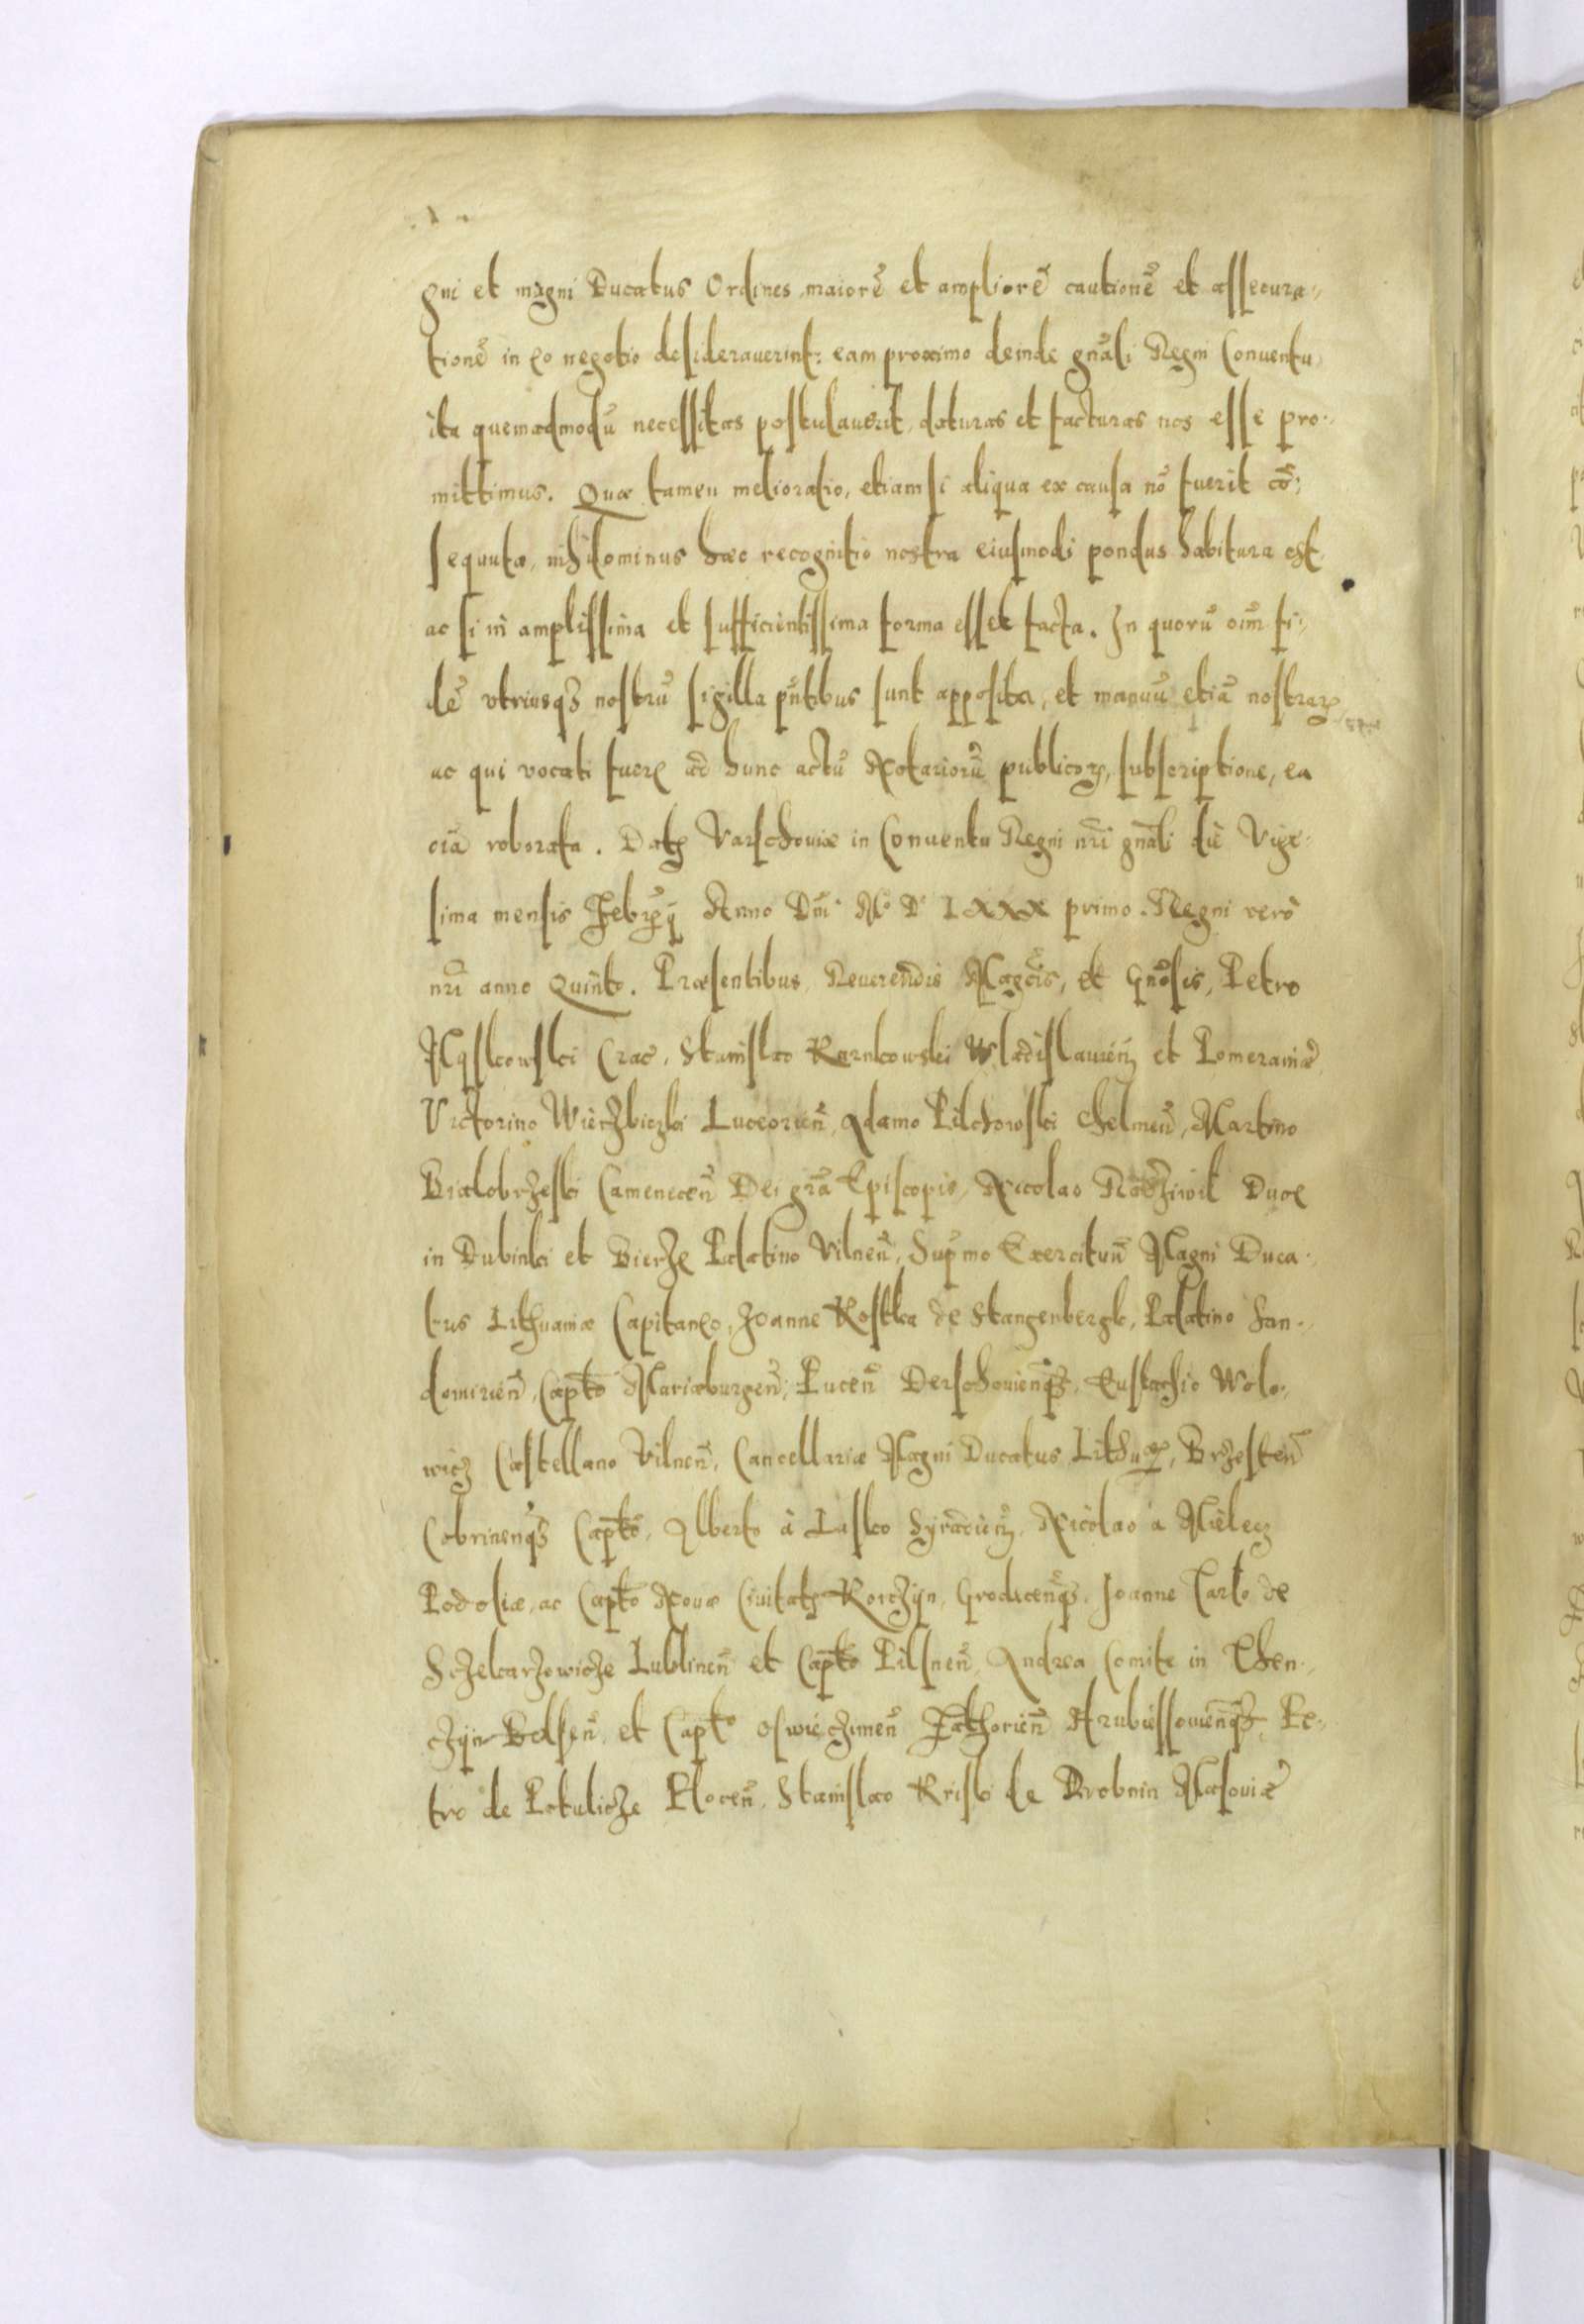 gni et magni Ducatus Ordines, maiorē et ampliorē cautionē et assecura⸗
tionē in eo negotio desiderauerint: eam proximo deinde gn̄ali Regni Conuentu
ita quemadmodū necessitas postulauerit, daturas et facturas nos esse pro⸗
mittimus. Quæ tamen melioratio, etiamsi aliqua ex causa nō fuerit cō⸗
sequuta, nihilominus hæc recognitio nostra eiusmodi pondus habitura est
ac si in amplissima et sufficientissima forma esset facta. In quorū oīm fi⸗
dē vtriusqȝ nostrū sigilla pn̄tibus sunt apposita, et manuū etiā nostrarꝝ
ac qui vocati fuerꝭ ad hunc actū Notariorū publicorꝝ, subscriptione, ea
oīa roborata. Datꝭ Varschouiæ in Conuentu Regni nr̄i gn̄ali die Vige⸗
sima mensis Febrꝝij Anno Dn̄i M° D° LXXX primo. Regni verò
nr̄i anno Quinto. Præsentibus Reuerendis Magc̄is, et Gn̄osis, Petro
Myskowski Crac̄, Stanislao Karnkowski Wladislauień et Pomeraniæ
Victorino Wierzbiczki Luceorień, Adamo Pilchowski Chelmeń, Martino
Bialobrzeski Cameneceń Dei grā Episcopis, Nicolao Radziwil Duce
in Dubinki et Bierze Palatino Vilneń, Sup̄mo Exercituū Magni Duca⸗
tus Lithuaniæ Capitaneo, Joanne Kostka de Stangenbergk, Palatino San⸗
domirień, Capt̄o Mariæburgeń, Puceń Derschouieńqȝ, Eustachio Wolo⸗
wicz Castellano Vilneń, Cancellariæ Magni Ducatus Lithuaꝝ, Brzesteń
Cobrineńqȝ Capt̄o, Alberto à Lasko Syradień, Nicolao à Mielecz
Podoliæ, ac Capt̄o Nouæ Ciuitatꝭ Korczyn, Grodeceńqȝ, Joanne Tarło de
Sczekarzowicze Lublineń et Capt̄o Pilsneń, Andrea Comite in Then⸗
czyn Belseń, et Capt̄o Oswieczimeń Hrubiessouieńqȝ, Pe⸗
tro de Potulicze Plоceń, Stanislao Kriski de Drobnin Masouiæ